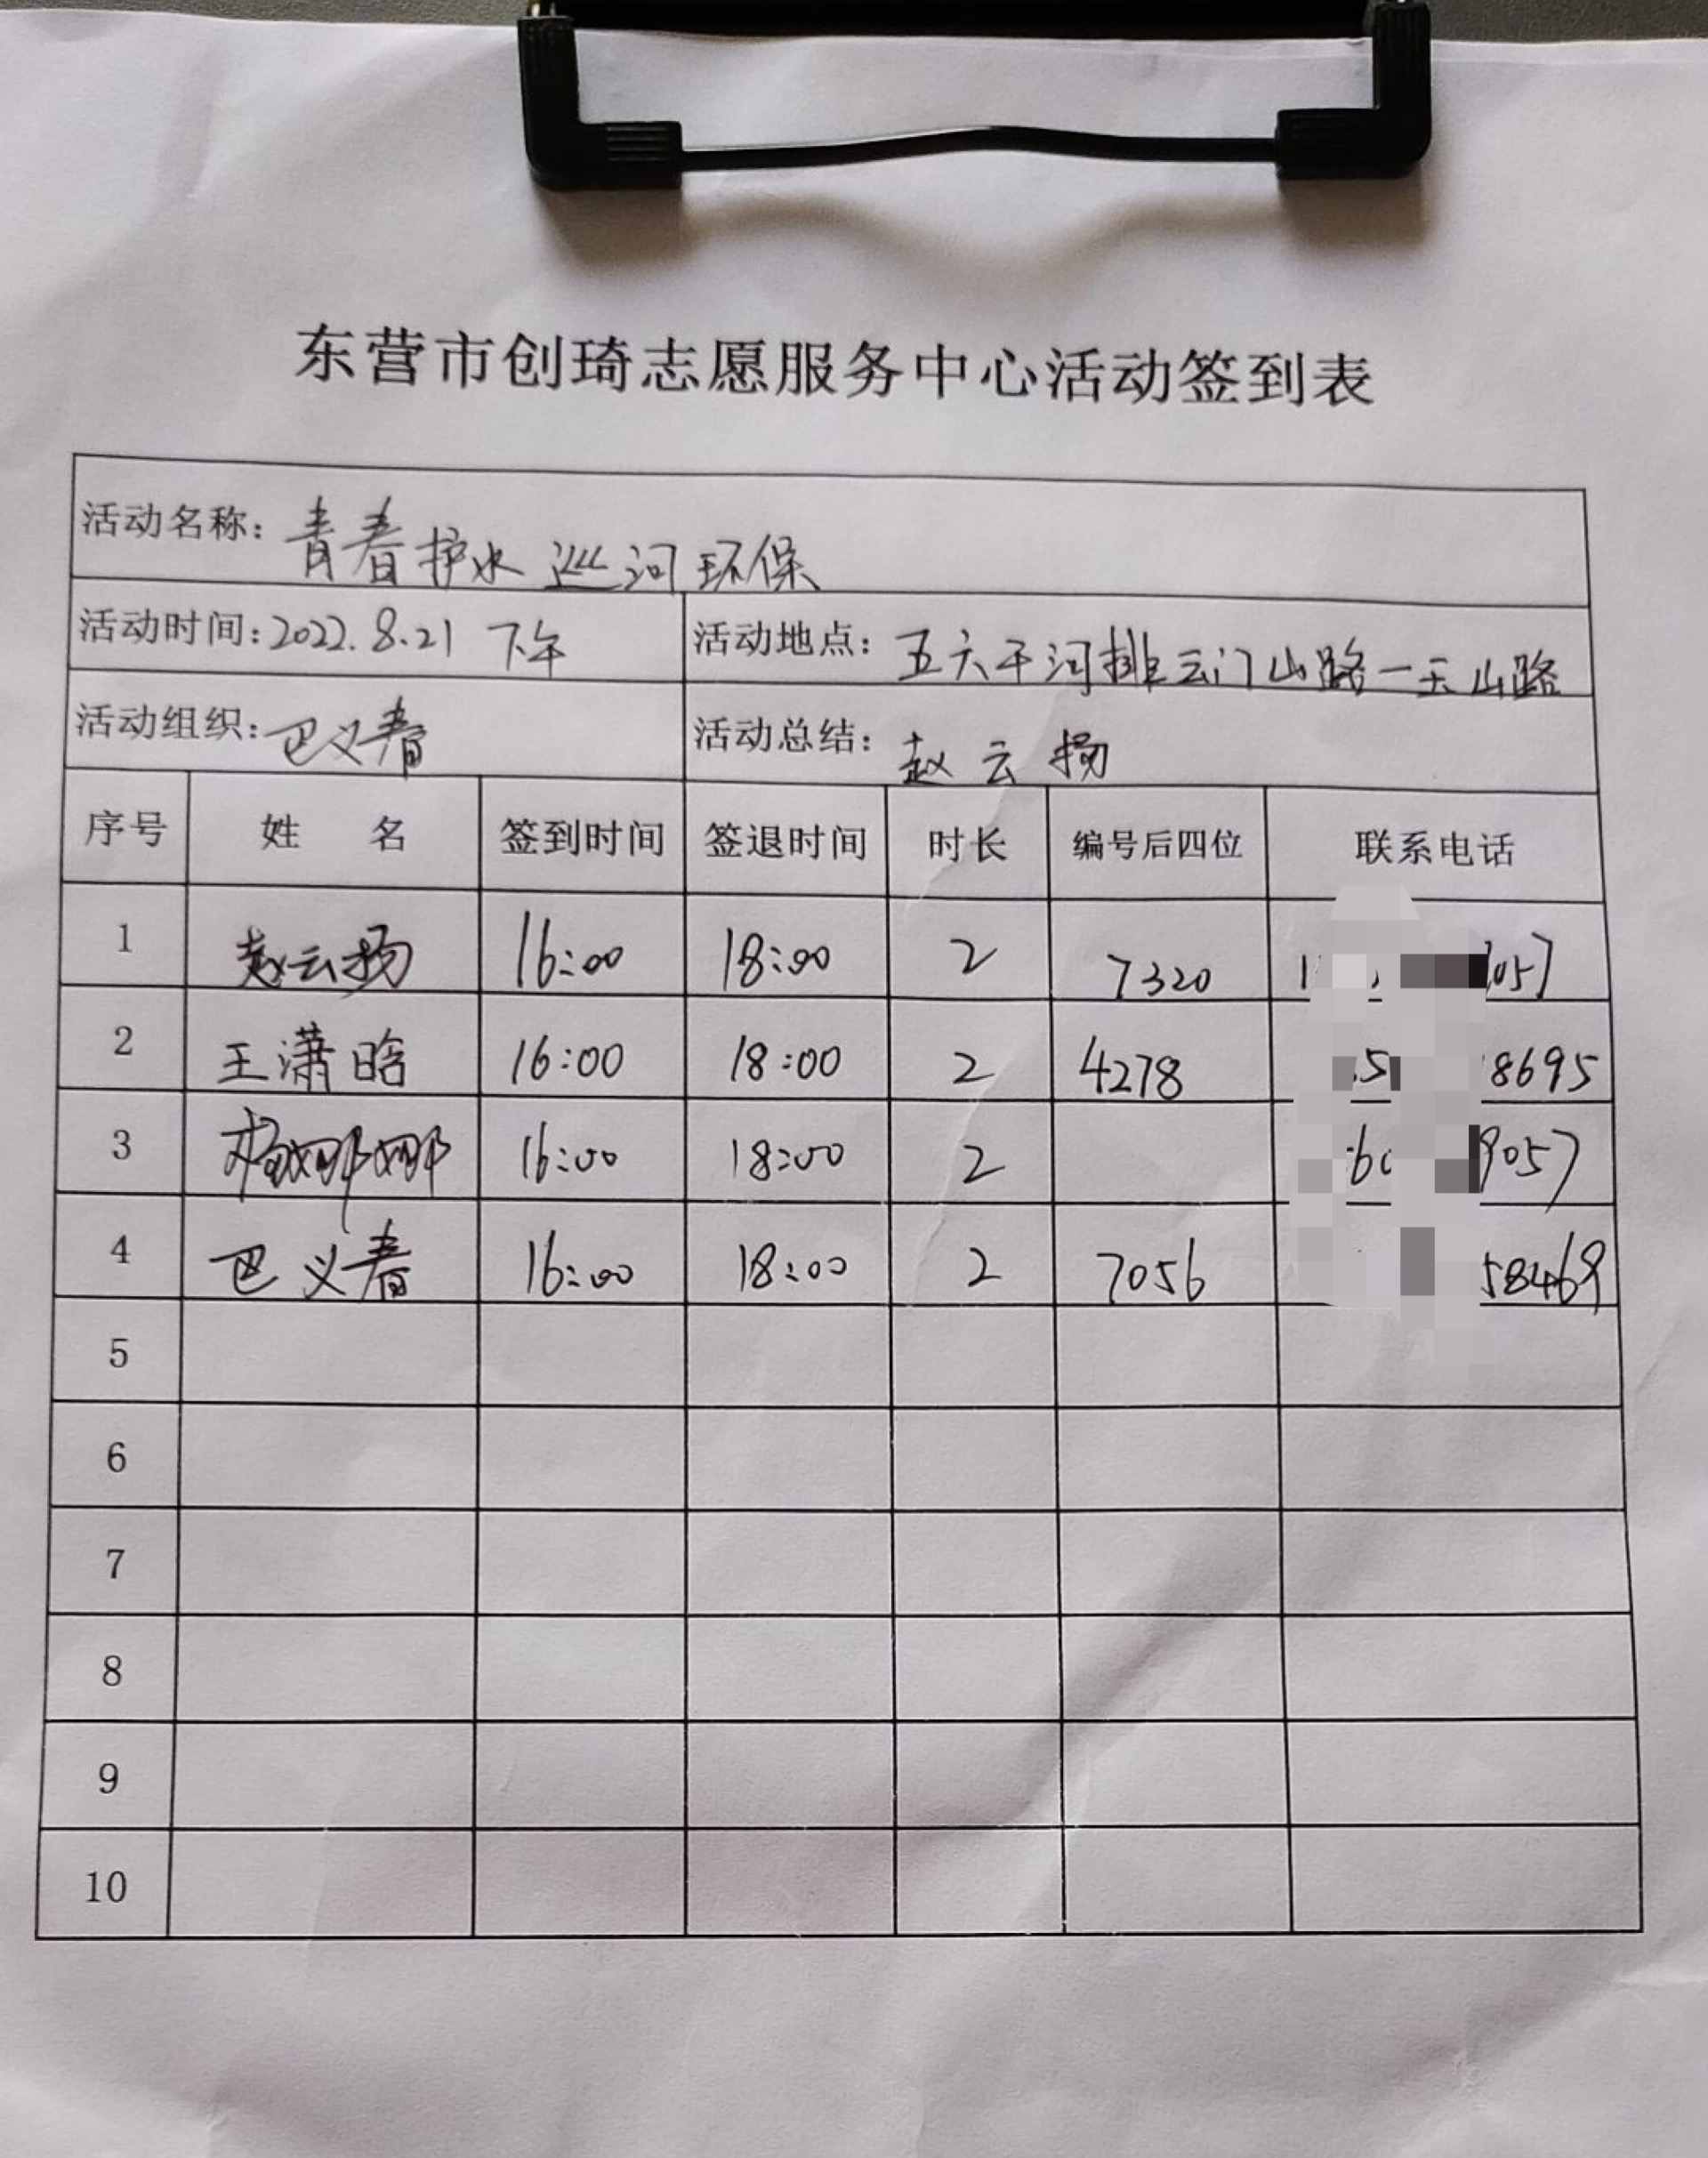 东营市创琦志愿服务中心活动签到表
活动名称：青春护水 巡河环保
活动时间：2022.8.21 下午 活动地点：五六干河排云门山路一玉山路
活动组织：巴义春 活动总结：赵云扬
序号 姓 名 签到时间 签退时间 时长 编号后四位 联系电话
1 赵云扬 16:00 18:00 2 7320 057
2 王潇晗 16:00 18:00 2 4278 8695
3 杨娜娜 16:00 18:00 2 9057
4 巴义春 16:00 18:00 2 7056 58469
5
6
7
8
9
10